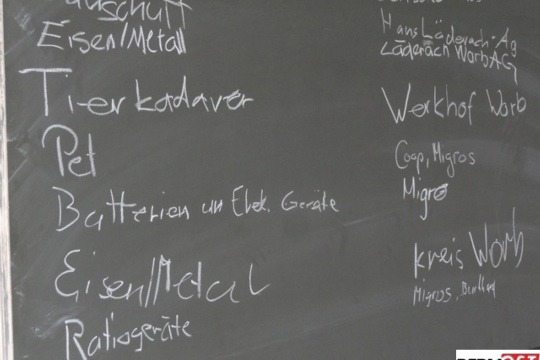 Bauschutt
Eisen/Metall
Hans Läderach-AG
Läderach Worb AG
Tierkadaver
Werkhof Worb
Pet
Coop, Migros
Batterien un Elek. Geräte
Migro
Eisen/Metal
Kreis Worb
Migros,
Ratiogeräte
BERN OST